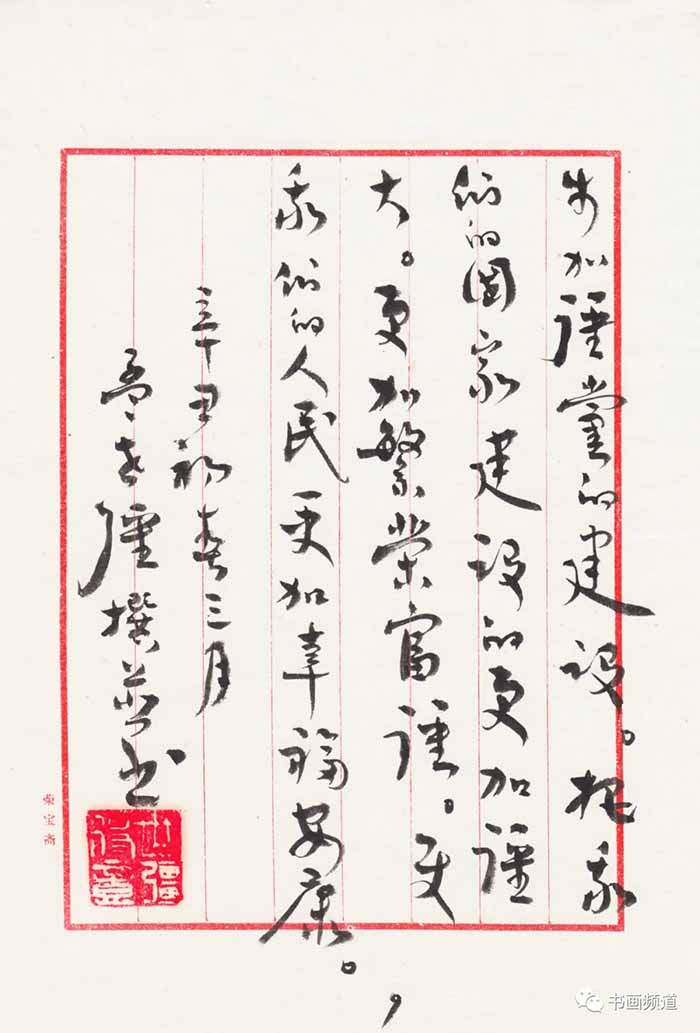 步加强党的建设。把我
们的国家建设的更加强
大。更加繁荣富强。使
我们的人民更加幸福安康。
辛丑初春三月
孟世强撰并书
世强
荣宝斋
书画频道